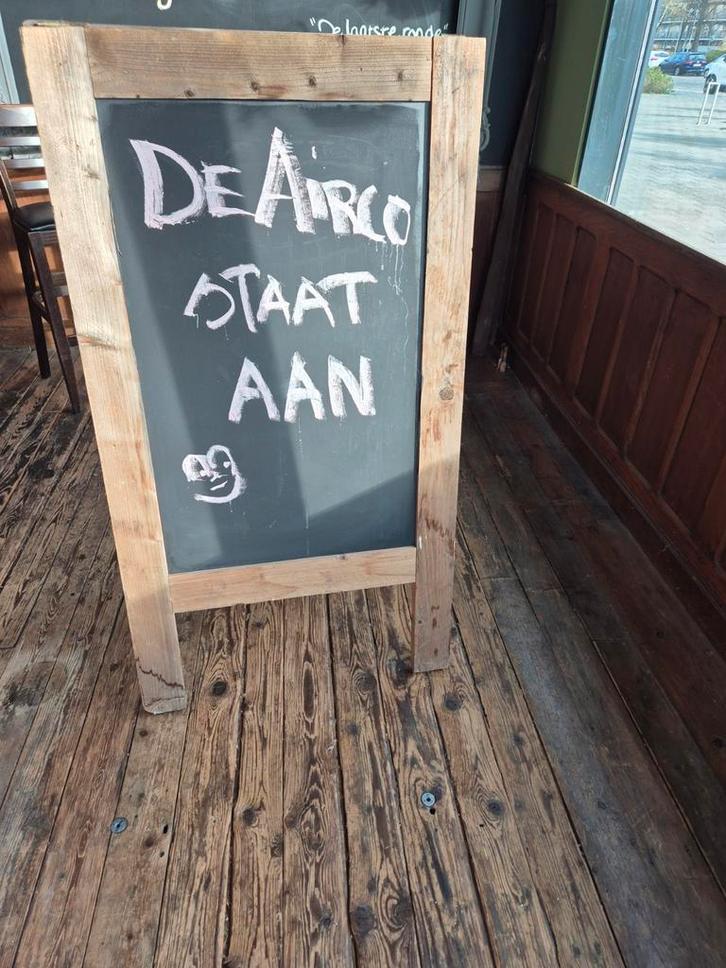 "De laatste ronde"
DE AiRCO
STAAT
AAN